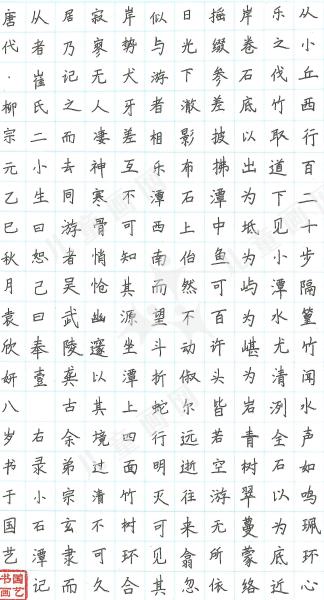 从小丘西行百二十步隔篁竹闻水声如鸣珮环心
乐之伐竹取道下见小潭水尤清冽全石以为底近
岸卷石底以出为坻为屿为嵁为岩青树翠蔓蒙络
摇缀参差披拂潭中鱼可百许头皆若空游无所依
日光下澈影布石上佁然不动俶尔远逝往来翕忽
似与游者相乐潭西南而望斗折蛇行明灭可见其
岸势犬牙差互不可知其源坐潭上四面竹树环合
寂寥无人凄神寒骨悄怆幽邃以其境过清不可久
居乃记之而去同游者吴武陵龚古余弟宗玄隶而
从者崔氏二小生曰恕己曰奉壹 右录小石潭记
唐代·柳宗元乙巳秋月袁欣妍八岁书于国艺
国艺书画